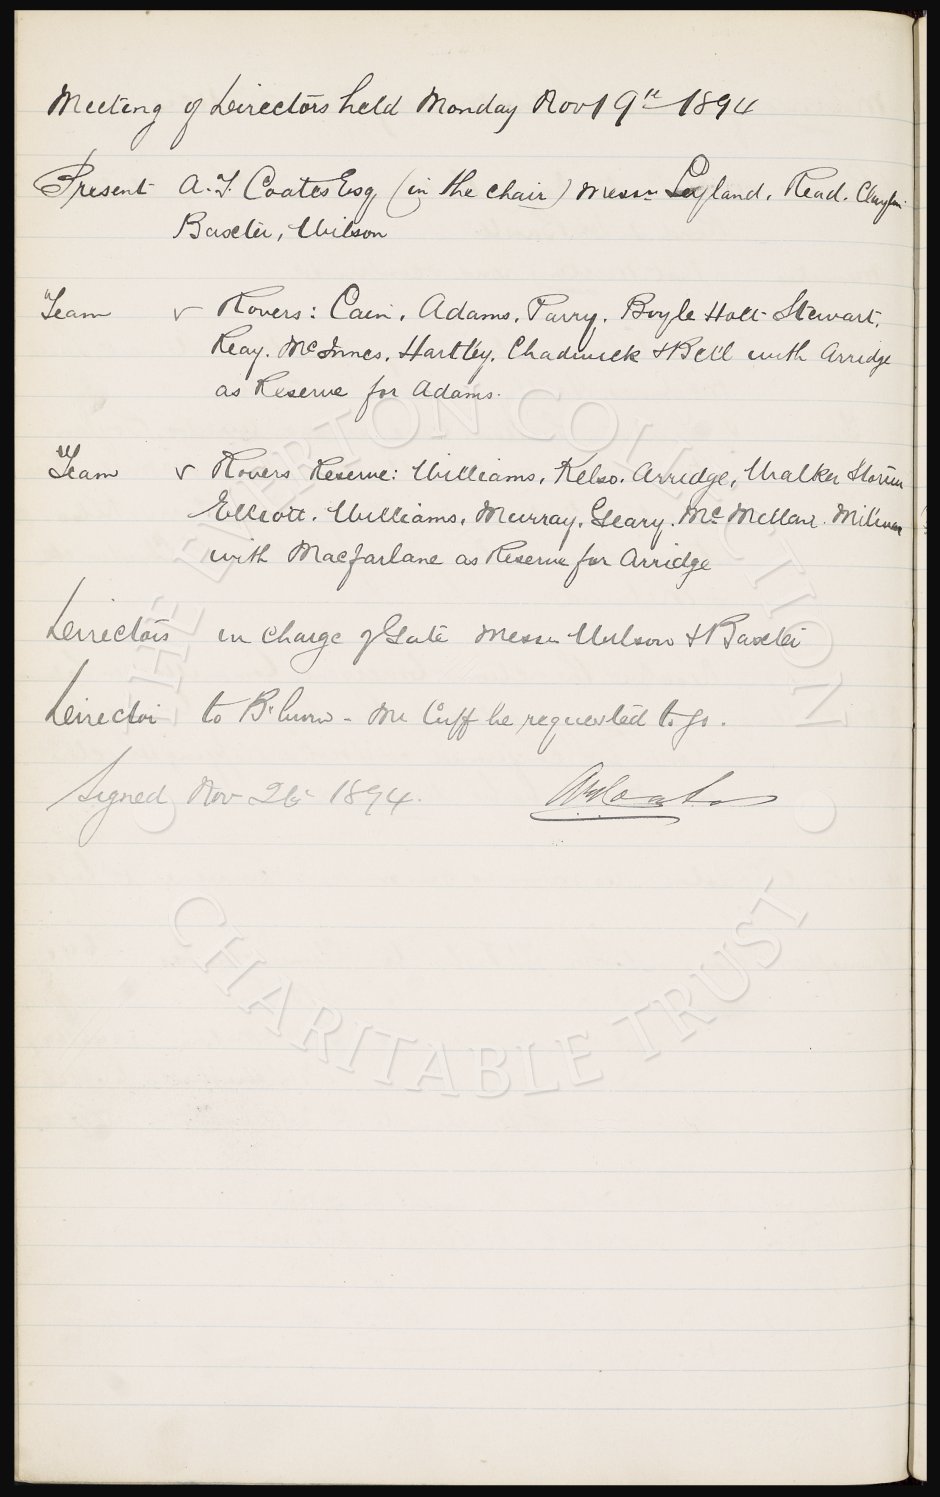 Meeting of Directors held Monday Nov 19th 1894
Present A. T. Coates Esq (in the chair) Messrs Leyland, Read, Clayton
Baxter, Wilson
Team v Rovers: Cain, Adams, Parry, Boyle Holt Stewart,
Reay, McInnes, Hartley, Chadwick & Bell with Arridge
as Reserve for Adams.
Team v Rovers Reserve: Williams, Kelso, Arridge, Walker Storrier
Elliott, Williams, Murray, Geary, McMillan, Milward
with Macfarlane as Reserve for Arridge
Directors in charge of Gate Messrs Wilson & Baxter
Director to B'burn - Mr Cuff be requested to go.
Signed Nov 26 1894. ATCoates
THE EVERTON COLLECTION
CHARITABLE TRUST